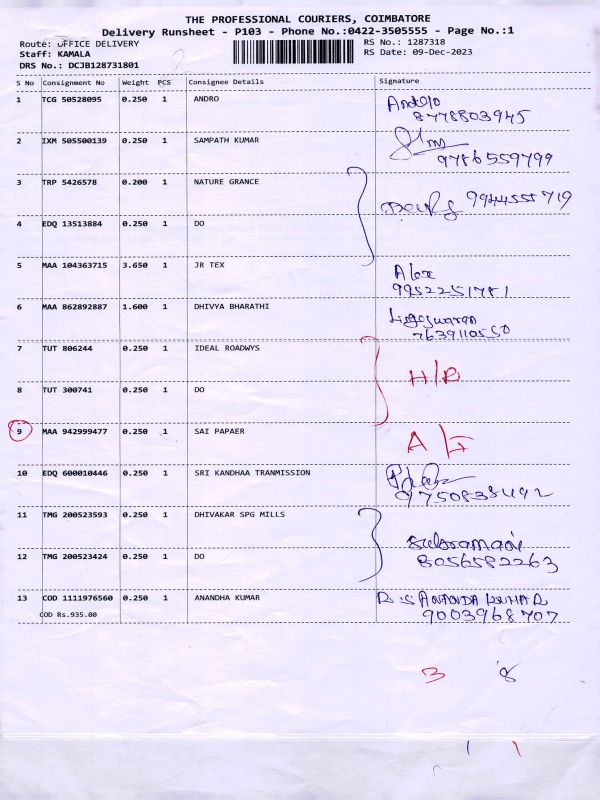 THE PROFESSIONAL COURIERS, COIMBATORE
Delivery Runsheet - P103 - Phone No.:0422-3505555 - Page No.:1
Route: OFFICE DELIVERY RS No.: 1287318
Staff: KAMALA RS Date: 09-Dec-2023
DRS No.: DCJB128731801
S No Consignment No Weight PCS Consignee Details Signature
1 TCG 50528095 0.250 1 ANDRO Andro
8778803945
2 IXM 505500139 0.250 1 SAMPATH KUMAR
9786559799
3 TRP 5426578 0.200 1 NATURE GRANCE
9944555719
4 EDQ 13513884 0.250 1 DO
5 MAA 104363715 3.650 1 JR TEX Alex
9952251781
6 MAA 862892887 1.600 1 DHIVYA BHARATHI Lingeswaran
7639110550
7 TUT 806244 0.250 1 IDEAL ROADWYS
H/R
8 TUT 300741 0.250 1 DO
9 MAA 942999477 0.250 1 SAI PAPAER
10 EDQ 600010446 0.250 1 SRI KANDHAA TRANMISSION
9750838492
11 TMG 200523593 0.250 1 DHIVAKAR SPG MILLS
Subramani
12 TMG 200523424 0.250 1 DO 8056582263
13 COD 1111976560 0.250 1 ANANDHA KUMAR R.S ANANDA KUMAR
COD Rs.935.00 9003968707
3 8